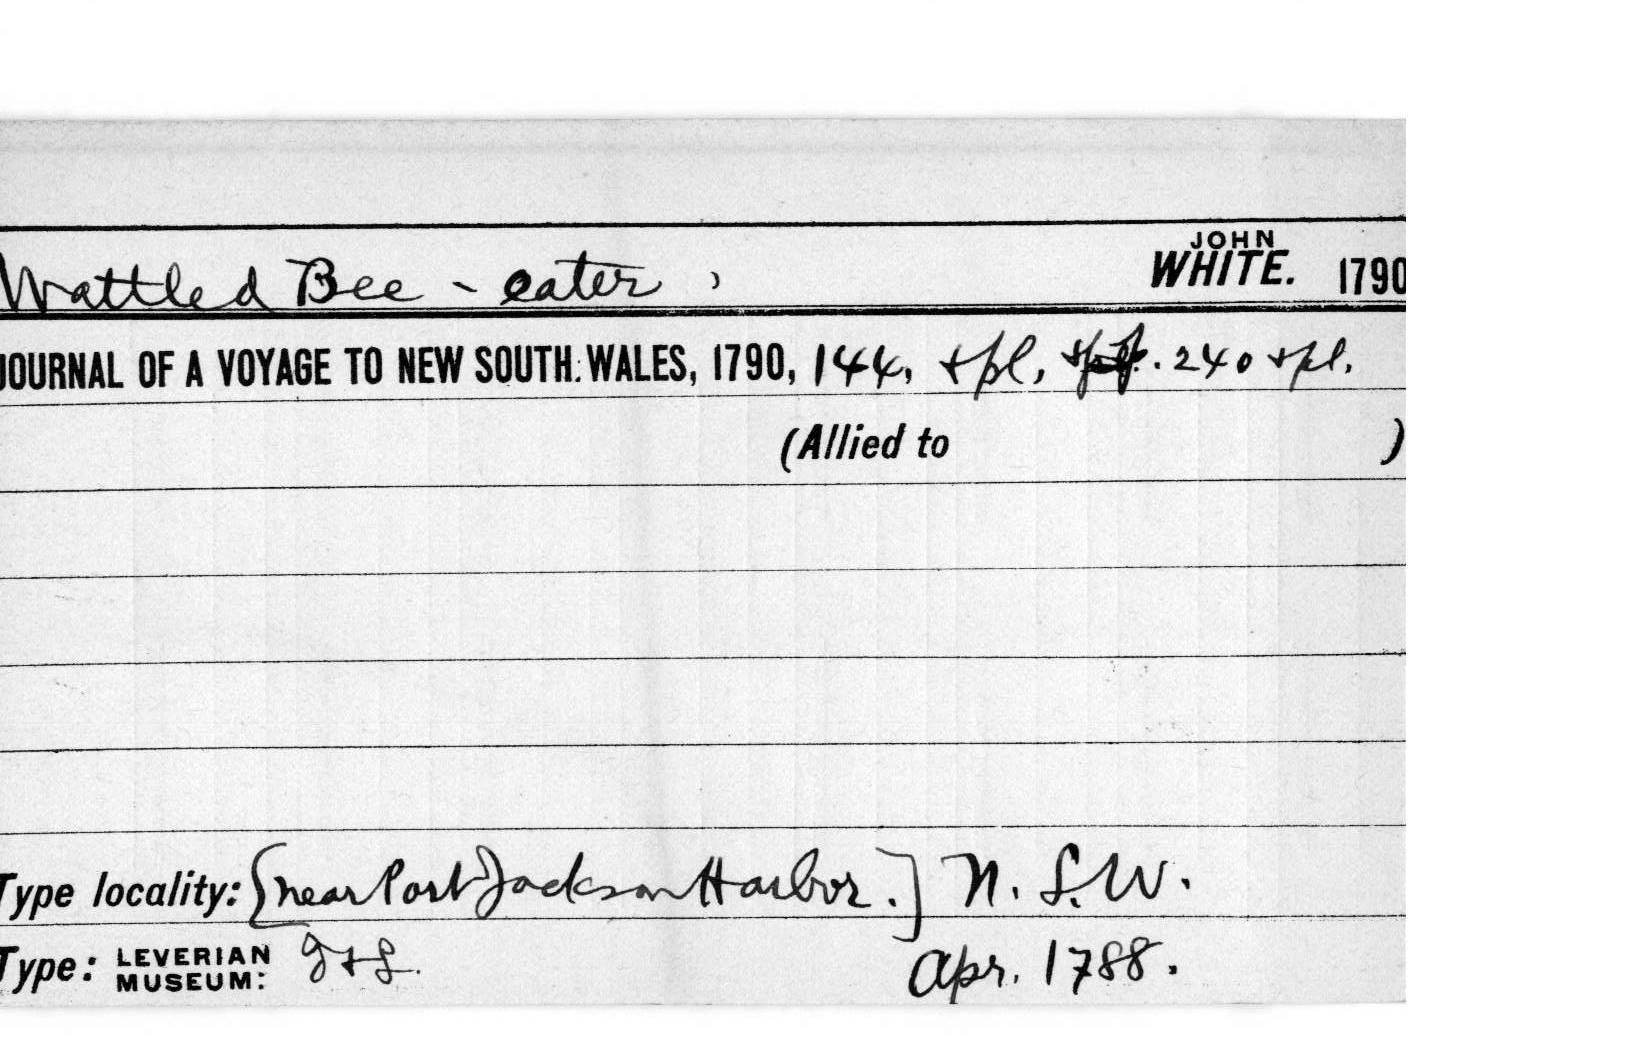 Wattled Bee - eater, JOHN WHITE. 1790
JOURNAL OF A VOYAGE TO NEW SOUTH WALES, 1790, 144, + pl, . 240 + pl.
(Allied to )
Type locality: [near Port Jackson Harbor.] N. S. W.
Type: LEVERIAN MUSEUM: Apr. 1788.